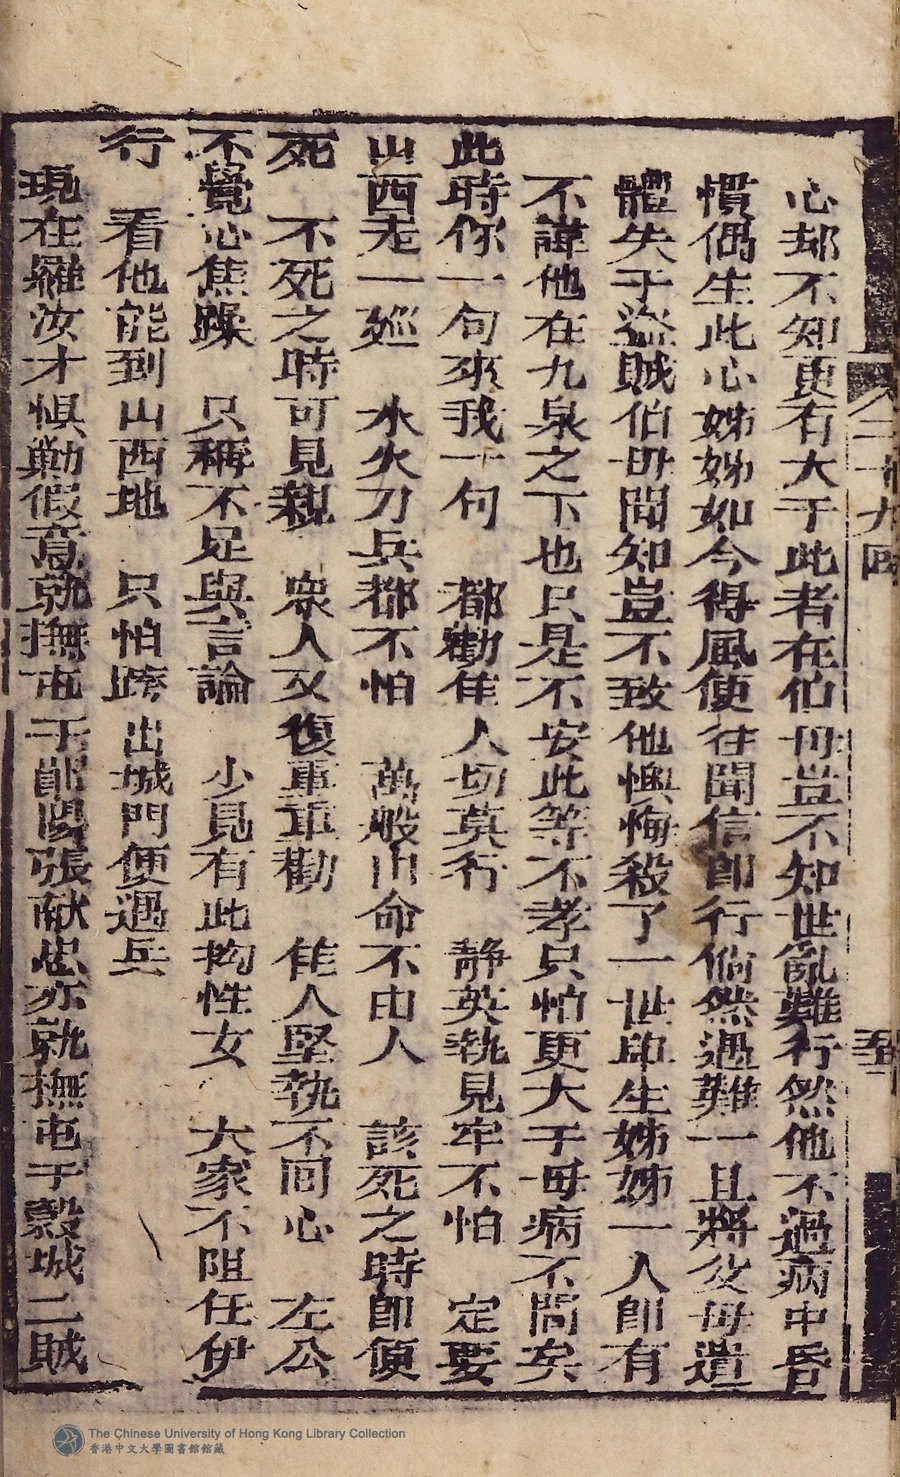 二十九回
五
心却不知更有大于此者在伯母豈不知世亂難行然他不過病中昏
慣偶生此心姊姊如今得風便往聞信即行倘然遇難一旦將父母遺
體失于盜賊伯母聞知豈不致他懊悔殺了一世即生姊姊一人即有
不諱他在九泉之下也只是不安此等不孝只怕更大于母病不問矣
此時你一句來我一句　都勸佳人切莫行　靜英執見牢不怕　定要
山西走一廵　水火刀兵都不怕　萬般由命不由人　該死之時即便
死　不死之時可見親　衆人又復重重勸　佳人堅執不回心　左公
不覺心焦躁　只稱不足與言論　少見有此拘性女　大家不阻任伊
行　看他能到山西地　只怕跨出城門便遇兵
現在羅汝才惧勦假意就撫屯于鄖陽張献忠亦就撫屯于穀城二賊
The Chinese University of Hong Kong Library Collection
香港中文大學圖書館館藏